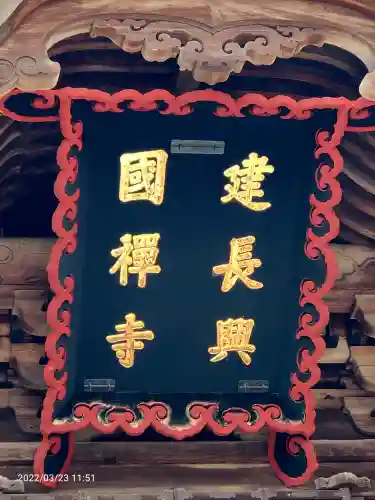 建長興
國禪寺
2022/03/23 11:51